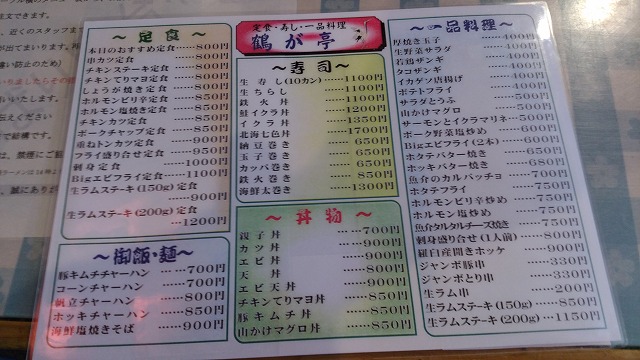 定食・寿し・一品料理
鶴が亭
～定食～
本日のおすすめ定食……800円
串カツ定食……800円
チキンステーキ定食……800円
チキンてりマヨ定食……850円
しょうが焼き定食……800円
ホルモンピリ辛定食……850円
ホルモン塩焼き定食……850円
チキンカツ定食……850円
ポークチャップ定食……850円
重ねトンカツ定食……900円
フライ盛合せ定食……950円
刺身定食……1000円
Bigエビフライ定食……1100円
生ラムステーキ(150g)定食
……900円
生ラムステーキ(200g)定食
……1200円
～御飯・麺～
豚キムチチャーハン……700円
コーンチャーハン……700円
帆立チャーハン……800円
ホッキチャーハン……800円
海鮮塩焼きそば……900円
～寿司～
生寿し(10カン)……1100円
生ちらし……1100円
鉄火丼……1100円
鮭イクラ丼……1200円
イクラ丼……1350円
北海七色丼……1700円
納豆巻き……650円
玉子巻き……650円
カッパ巻き……650円
鉄火巻き……850円
海鮮太巻き……1300円
～丼物～
親子丼……700円
カツ丼……900円
エビ丼……900円
天丼……900円
エビ天丼……900円
チキンてりマヨ丼……850円
豚キムチ丼……850円
山かけマグロ丼……850円
～一品料理～
厚焼き玉子……400円
生野菜サラダ……400円
若鶏ザンギ……400円
タコザンギ……400円
イカゲソ唐揚げ……400円
ポテトフライ……400円
サラダとうふ……500円
山かけマグロ……500円
サーモンとイクラマリネ…500円
ポーク野菜塩炒め……600円
Bigエビフライ(2本)……600円
ホタテバター焼き……650円
ホッキバター焼き……680円
魚介のカルパッチョ……700円
ホタテフライ……750円
ホルモンピリ辛炒め……750円
ホルモン塩炒め……750円
魚介タルタルチーズ焼き……750円
刺身盛り合せ(1人前)……800円
羅臼産開きホッケ……900円
ジャンボ豚串……330円
ジャンボとり串……330円
生ラム串……200円
生ラムステーキ(150g)……850円
生ラムステーキ(200g)…1150円